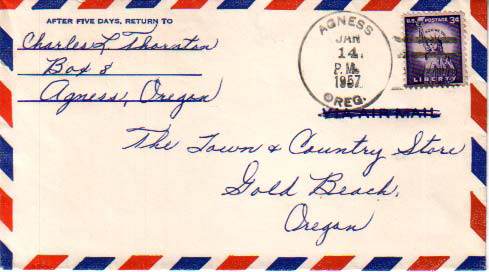 AFTER FIVE DAYS, RETURN TO
Charles L Thornton
Box 8
Agness, Oregon
AGNESS
JAN
14
P.M.
1957
OREG.
U.S. POSTAGE 3¢
LIBERTY
VIA AIR MAIL
The Town & Country Store
Gold Beach,
Oregon